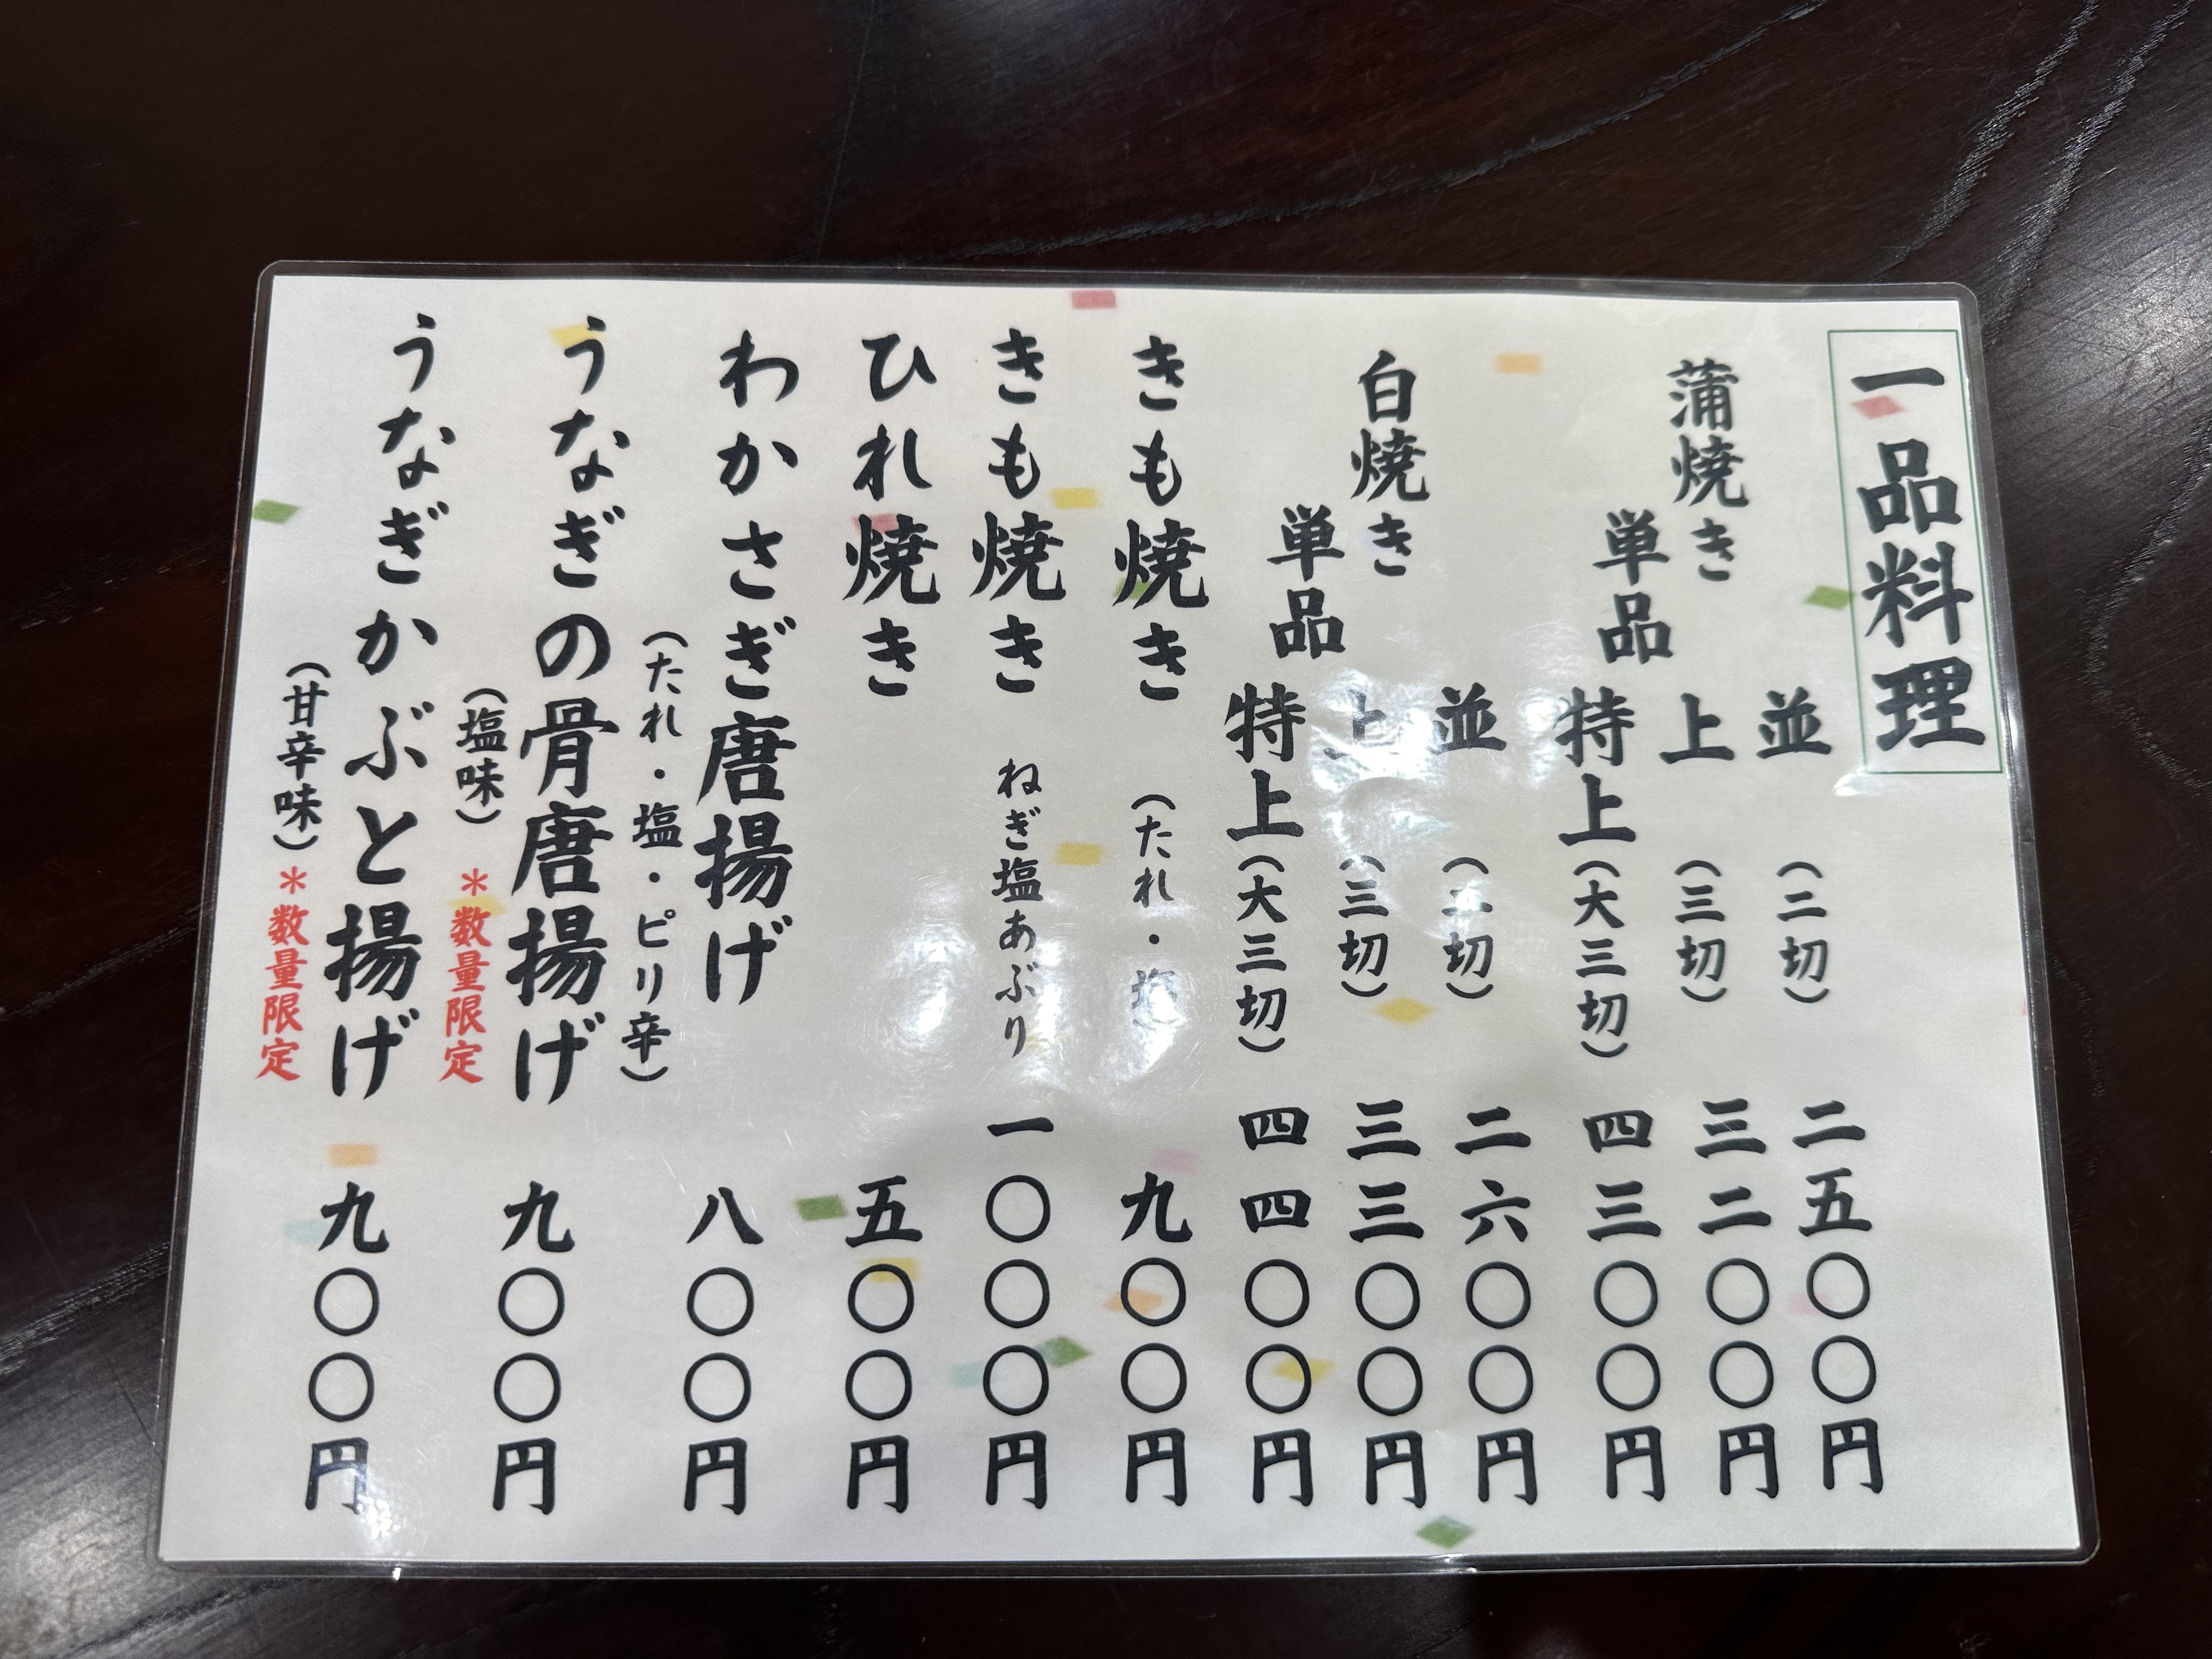 一品料理
蒲焼き
単品
並 （二切） 二五〇〇円
上 （三切） 三二〇〇円
特上（大三切） 四三〇〇円
白焼き
単品
並 （二切） 二六〇〇円
上 （三切） 三三〇〇円
特上（大三切） 四四〇〇円
きも焼き （たれ・塩） 九〇〇円
きも焼き ねぎ塩あぶり 一〇〇〇円
ひれ焼き 五〇〇円
わかさぎ唐揚げ 八〇〇円
（たれ・塩・ピリ辛）
うなぎの骨唐揚げ 九〇〇円
（塩味）＊数量限定
うなぎかぶと揚げ 九〇〇円
（甘辛味）＊数量限定